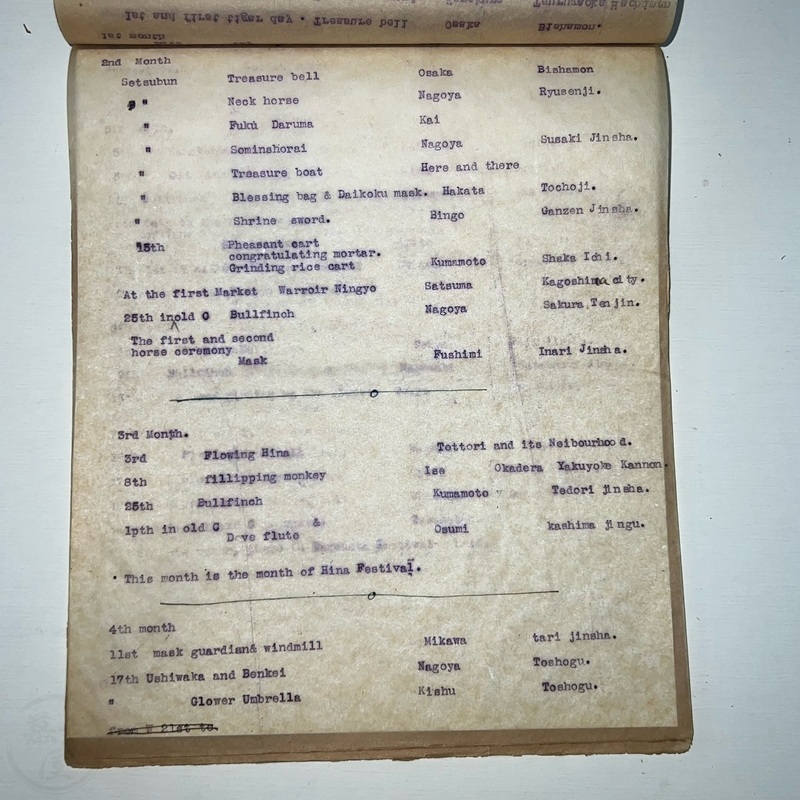 1st and first tiger day . Treasure bell Osaka Bishamon.
1st month
2nd Month
Setsubun Treasure bell Osaka Bishamon
" Neck horse Nagoya Ryusenji.
" Fuku Daruma Kai
" Sominshorai Nagoya Susaki Jinsha.
" Treasure boat Here and there
" Blessing bag & Daikoku mask. Hakata Tochoji.
" Shrine sword. Bingo Ganzen Jinsha.
15th Pheasant cart
congratulating mortar.
Grinding rice cart Kumamoto Shaka Ichi.
At the first Market Warroir Ningyo Satsuma Kagoshima city.
25th in old C Bullfinch Nagoya Sakura Tenjin.
The first and second
horse ceremony
Mask Fushimi Inari Jinsha.
3rd Month.
3rd Flowing Hina Tottori and its Neibourhood.
8th fillipping monkey Ise Okadera Yakuyoke Kannon.
25th Bullfinch Kumamoto Tedori jinsha.
1pth in old C &
Dove flute Osumi kashima jingu.
. This month is the month of Hina Festival.
4th month
11st mask guardian& windmill Mikawa tari jinsha.
17th Ushiwaka and Benkei Nagoya Toshogu.
" Glower Umbrella Kishu Toshogu.
from W 21st to.